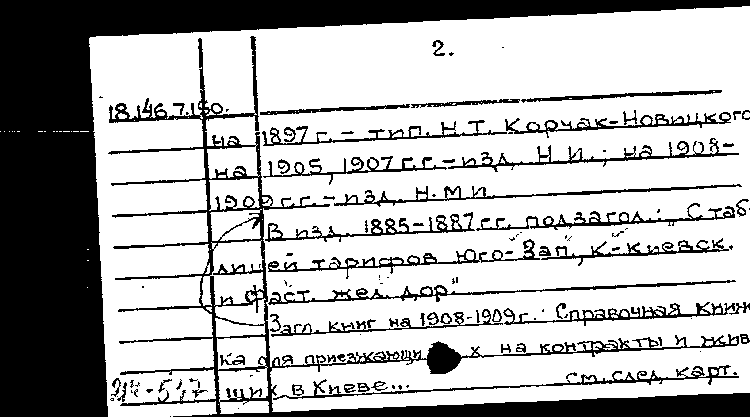 2.
18.146.7.180.
на 1897 г. – тип. Н.Т. Корчак-Новицкого
на 1905, 1907 г.г. – изд. Н.И.; на 1908-
1909 г.г. – изд. Н.М и
В изд. 1885-1887 г.г. подзагол.: „С таб-
лицей тарифов Юго-Зап., К.-Киевск.
и Фаст. жел. дор."
Загл. книг на 1908-1909 г.: Справочная книж
ка для приезжающи х на контракты и жив
щих в Киеве...
см. след. карт.